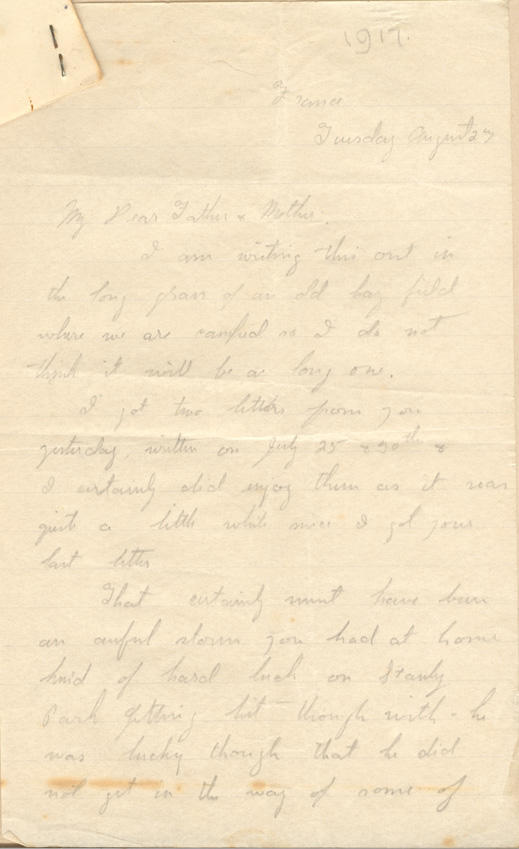 1917.
France
Tuesday August 27
My Dear Father & Mother:
I am writing this out in
the long grass of an old hay field
where we are camped so I do not
think it will be a long one.
I got two letters from you
yesterday, written on July 25 & 30th &
I certainly did enjoy them as it was
quite a little while since I got your
last letter
That certainly must have been
an awful storm you had at home
kind of hard luck on Stanly
Park getting hit though with - he
was lucky though that he did
not get in the way of some of